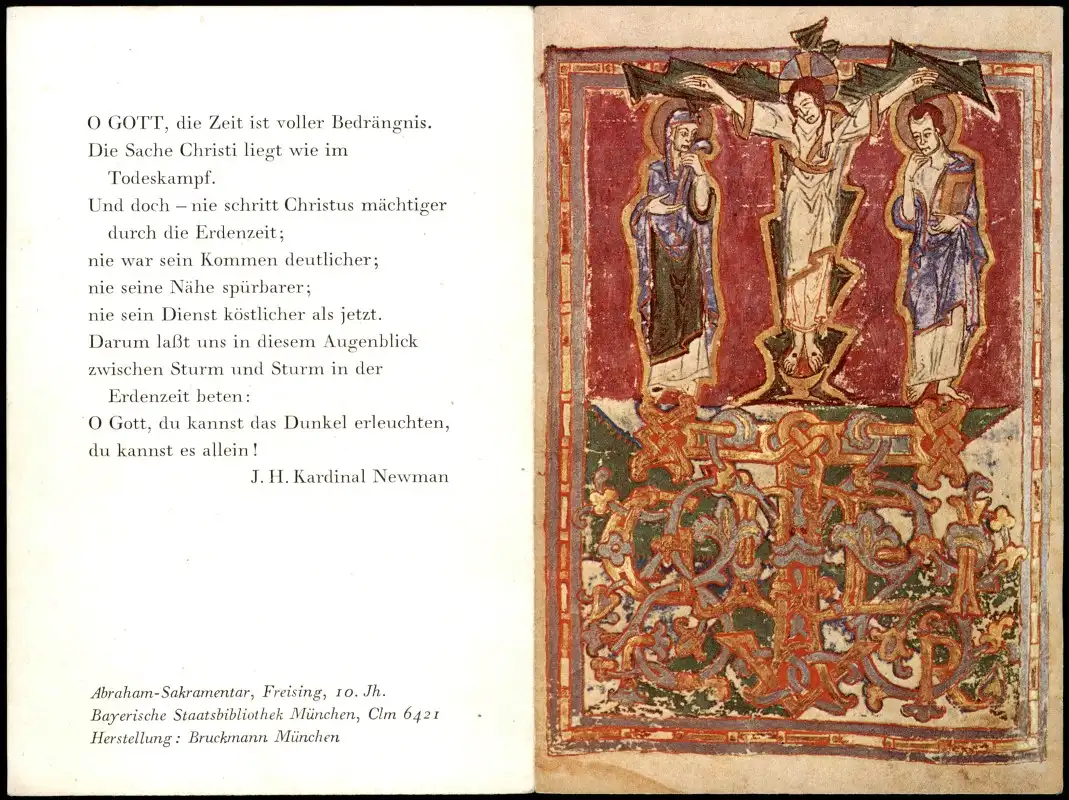 O GOTT, die Zeit ist voller Bedrängnis.
Die Sache Christi liegt wie im
Todeskampf.
Und doch – nie schritt Christus mächtiger
durch die Erdenzeit;
nie war sein Kommen deutlicher;
nie seine Nähe spürbarer;
nie sein Dienst köstlicher als jetzt.
Darum laßt uns in diesem Augenblick
zwischen Sturm und Sturm in der
Erdenzeit beten:
O Gott, du kannst das Dunkel erleuchten,
du kannst es allein!
J. H. Kardinal Newman
Abraham-Sakramentar, Freising, 10. Jh.
Bayerische Staatsbibliothek München, Clm 6421
Herstellung: Bruckmann München